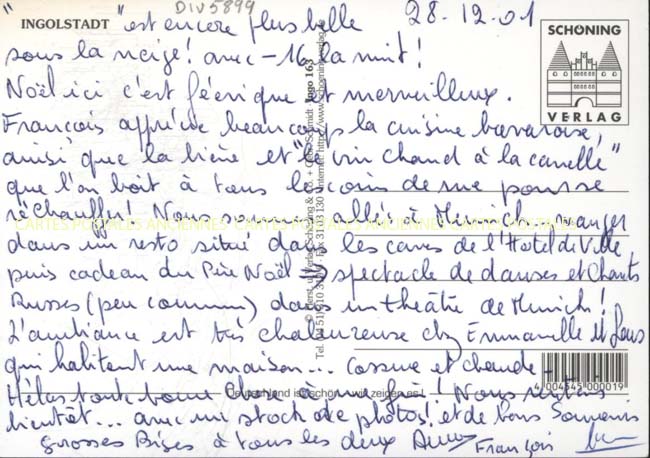 DIV5899
INGOLSTADT
"est encore plus belle
28-12-01
sous la neige! avec -16 la nuit!
Noël ici c'est féérique et merveilleux.
François apprécie beaucoup la cuisine bavaroise,
ainsi que la bière et "le vin chaud à la canelle"
que l'on boit à tous les coins de rue pour se
réchauffer! Nous sommes allés à Munich, manger
dans un resto situé dans les caves de l'Hotel de Ville
puis cadeau du Père Noël spectacle de danses et chants
Russes (peu commun) dans un théâtre de Munich!
L'ambiance est très chaleureuse chez Emmanuelle et
qui habitent une maison... cossue et chaude -
Hélas toute bonne chose à une fin! Nous
bientôt... avec un stock de photos! et de bons Souvenirs
grosses Bises à tous les deux
François
SCHÖNING
VERLAG
CARTES POSTALES ANCIENNES CARTES POSTALES ANCIENNES CARTES POSTALES
Deutschland ist schön - wir zeigen es!
4 004545 000019